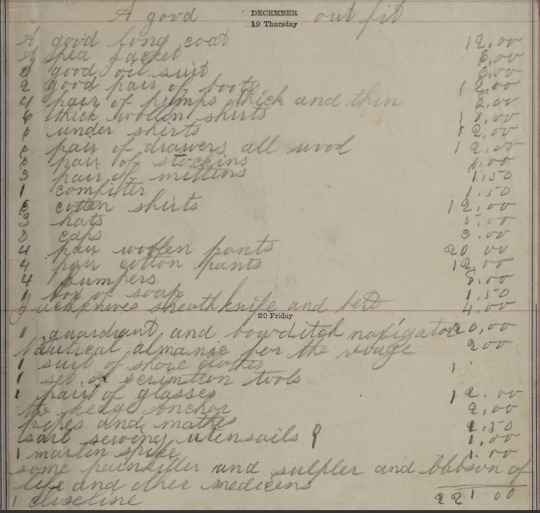 DECEMBER
A good out fit
19 Thursday
A good long coat 12,00
A pea Jacket 6,00
a good oil suit 6,00
2 good pair of boots 12,00
4 pair of pumps thick and thin 2,00
6 thick wollen shirts 18,00
6 under shirts 12,00
6 pair of drawers all wool 12,00
pair of stockins 4,00
3 pair of mittens 1,50
1 comfuter 1,50
6 cotten shirts 12,00
3 hats 5,00
3 caps 3,00
4 pair woollen pants 20 00
4 pair cotton pants 12,00
4 jumpers 8,00
1 box of soap 1,50
Jackknives sheathknife and belt 4,00
20 Friday
1 quardrant and bowditch navigator 20,00
Nautical almanic for the voage 2 00
1 suit of shore clothes 1
1 set of scrimtion tools
1 pair of glasses 12.00
kedge anchor 2,00
pipes and matches 2,50
sail sewing utensails 1,00
1 marlin spike 1.00
some painkiller and sulpher and balsom of
life and other medicens
1 closeline 221 00